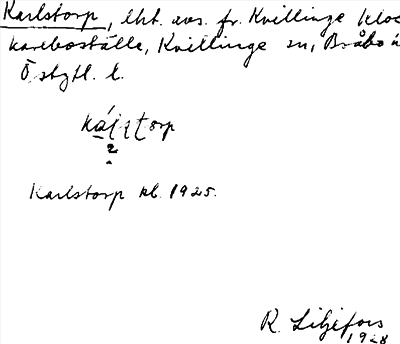 Karlstorp, lht. avs. fr. Kvillinge kloc
kareboställe, Kvillinge sn, Bråbo h
Östgtl. l.
Karlstorp kb. 1925.
R. Liljefors
1928